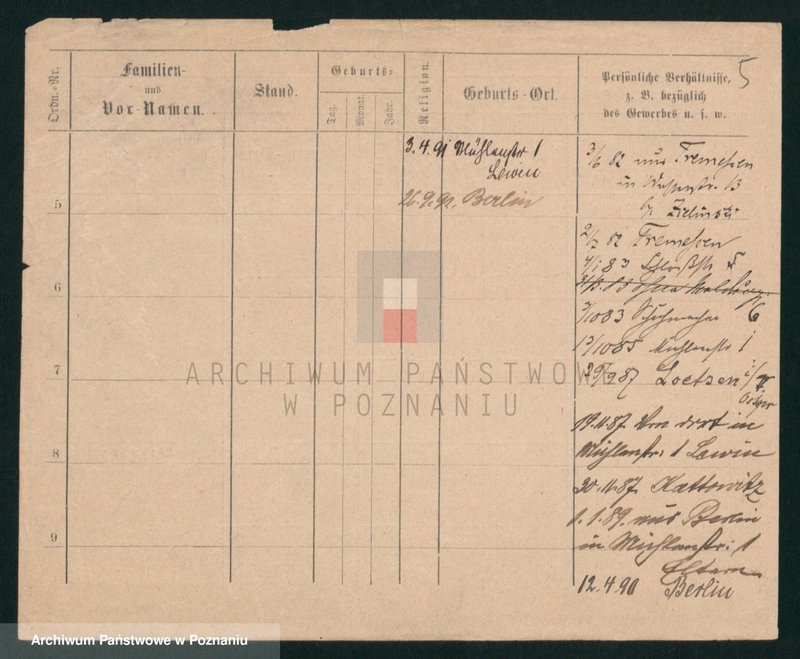 5
Ordn.-Nr.
Familien-
und
Vor-Namen.
Stand.
Geburts-
Tag
Monat.
Jahr.
Religion.
Geburts-Ort.
Persönliche Verhältnisse,
z. B. bezüglich
des Gewerbes u. s. w.
3.4.91 Mühlenstr 1
Lewin
26.9.91. Berlin
5
6
7
8
9
82 aus Tremessen
in 13
by Zielinski
82 Tremessen
83
3/10 83 Schuhmacher 6
13/10 85 Mühlenstr 1
29/9 87 Loetzen i/
Ostpr
19.11.87. Von dort in
Mühlenstr. 1 Lewin
20.11.87. Kattowitz
1.1.89. aus Berlin
in Mühlenstr: 1
Eltern
12.4.90 Berlin
ARCHIWUM PAŃSTWOWE
W POZNANIU
Archiwum Państwowe w Poznaniu